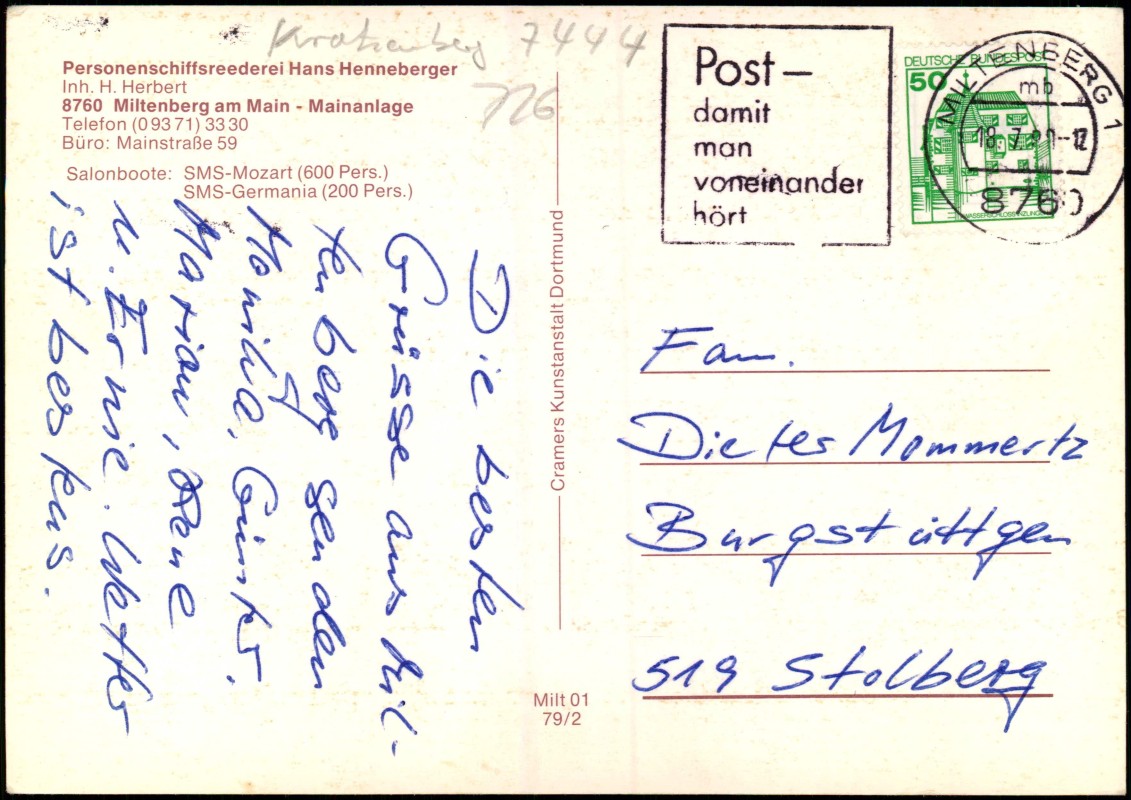 Kratzenberg 7444
726
Personenschiffsreederei Hans Henneberger
Inh. H. Herbert
8760 Miltenberg am Main - Mainanlage
Telefon (09371) 3330
Büro: Mainstraße 59
Salonboote: SMS-Mozart (600 Pers.)
SMS-Germania (200 Pers.)
Die besten
Grüsse aus Mil-
tenberg senden
Monika, Günter,
Marion, Rene
u. Ernie. Wetter
ist bestens.
Cramers Kunstanstalt Dortmund
Milt 01
79/2
Post –
damit
man
voneinander
hört
DEUTSCHE BUNDESPOST
50
WASSERSCHLOSS INZLINGEN
MILTENBERG 1
mb
18.7.80-12
8760
Fam.
Dieter Mommertz
Burgstüttgen
519 Stolberg